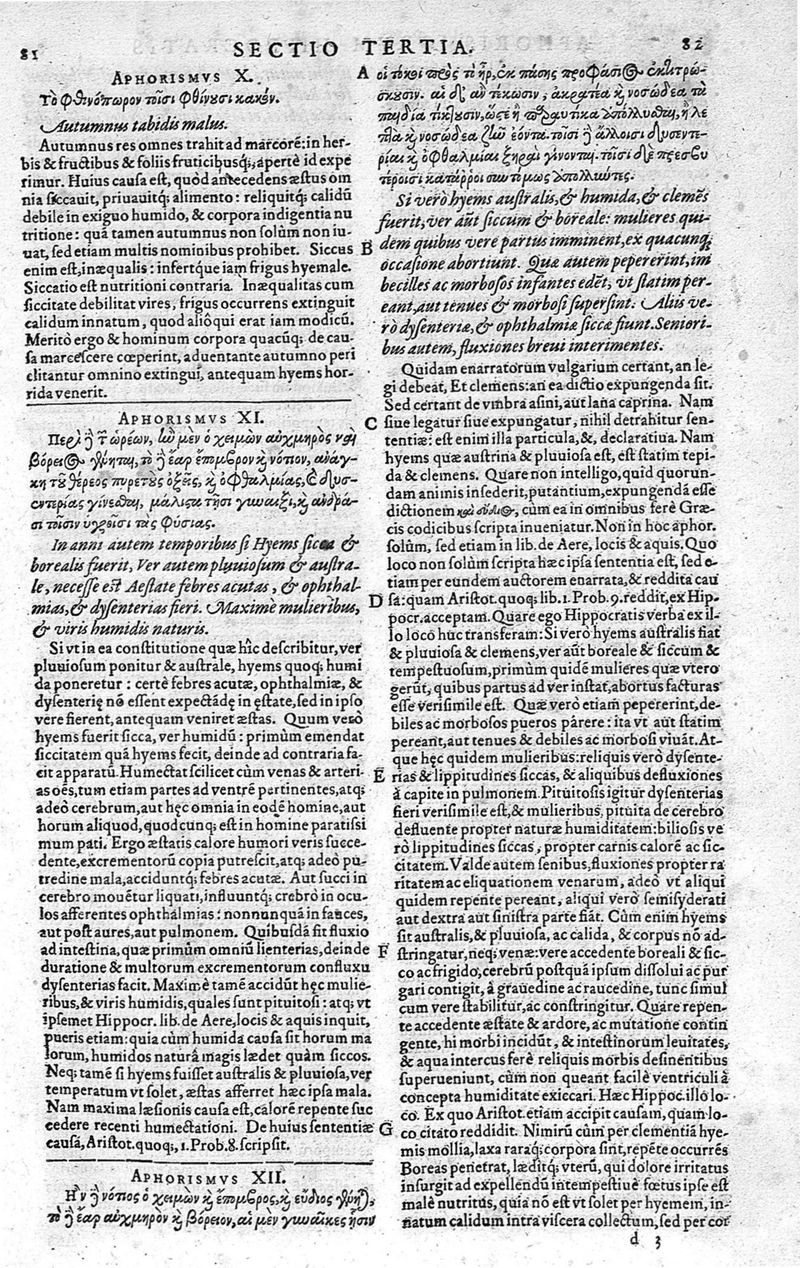 81
SECTIO TERTIA.
82
APHORISMVS X.
Τὸ φθινόπωρον τοῖσι φθίνουσι κακόν.
Autumnus tabidis malus.
Autumnus res omnes trahit ad marcorē: in her-
bis & fructibus & foliis fruticibusq;, apertè id expe
rimur. Huius causa est, quòd antecedens æstus om
nia siccauit, priuauitq; alimento: reliquitq; calidū
debile in exiguo humido, & corpora indigentia nu
tritione: quā tamen autumnus non solùm non iu-
uat, sed etiam multis nominibus prohibet. Siccus
enim est, inæqualis: infertq́ue iam frigus hyemale.
Siccatio est nutritioni contraria. Inæqualitas cum
siccitate debilitat vires, frigus occurrens extinguit
calidum innatum, quod alióqui erat iam modicū.
Meritò ergo & hominum corpora quacūq; de cau-
sa marcescere cœperint, aduentante autumno peri
clitantur omnino extingui, antequam hyems hor-
rida venerit.
APHORISMVS XI.
Περὶ δὲ τῶν ὡρέων, ἢν μὲν ὁ χειμὼν αὐχμηρὸς καὶ
βόρειος γένηται, τὸ δὲ ἔαρ ἔπομβρον καὶ νότιον, ἀνάγ-
κη τοῦ θέρεος πυρετοὺς ὀξεῖς, καὶ ὀφθαλμίας, καὶ δυσ-
εντερίας γίνεσθαι, μάλιστα τῇσι γυναιξὶ, καὶ ἀνδρά-
σι τοῖσιν ὑγροῖσι τὰς φύσιας.
In anni autem temporibus si Hyems sicca &
borealis fuerit, Ver autem pluuiosum & austra-
le, necesse est Aestate febres acutas, & ophthal-
mias, & dysenterias fieri. Maximè mulieribus,
& viris humidis naturis.
Si vt in ea constitutione quæ hîc describitur, ver
pluuiosum ponitur & australe, hyems quoq; humi
da poneretur: certè febres acutæ, ophthalmiæ, &
dysenterię nō essent expectādę in ęstate, sed in ipso
vere fierent, antequam veniret æstas. Quum verò
hyems fuerit sicca, ver humidū: primùm emendat
siccitatem quā hyems fecit, deinde ad contraria fa-
cit apparatū. Humectat scilicet cùm venas & arteri-
as oēs, tum etiam partes ad ventrē pertinentes, atq;
adeò cerebrum, aut hęc omnia in eodē homine, aut
horum aliquod, quodcunq; est in homine paratissi
mum pati. Ergo æstatis calore humori veris succe-
dente, excremētorū copia putrescit, atq; adeò pu-
tredine mala, acciduntq; febres acutæ. Aut succi in
cerebro mouētur liquati, influuntq; crebrò in ocu-
los afferentes ophthálmias: nonnunquā in fauces,
aut post aures, aut pulmonem. Quibusdā fit fluxio
ad intestina, quæ primùm omniū lienterias, deinde
duratione & multorum excrementorum confluxu
dysenterias facit. Maximè tamē accidūt hęc mulie-
ribus, & viris humidis, quales sunt pituitosi: atq; vt
ipsemet Hippocr. lib. de Aere, locis & aquis inquit,
pueris etiam: quia cùm humida causa sit horum ma
lorum, humidos naturâ magis lædet quàm siccos.
Neq; tamē si hyems fuisset australis & pluuiosa, ver
temperatum vt solet, æstas afferret hæc ipsa mala.
Nam maxima læsionis causa est, calorē repente suc
cedere recenti humectationi. De huius sententiæ
causâ, Aristot. quoq;, 1. Prob. 8. scripsit.
APHORISMVS XII.
Ἢν δὲ νότιος ὁ χειμὼν καὶ ἔπομβρος, καὶ εὔδιος γένηται,
τὸ δὲ ἔαρ αὐχμηρὸν καὶ βόρειον, αἱ μὲν γυναῖκες ᾗσιν
A οἱ τόκοι πρὸς τὸ ἦρ, ἐκ πάσης προφάσιος ἐκτιτρώ-
σκουσιν. αἱ δ' ἂν τέκωσιν, ἀκρατέα καὶ νοσώδεα τὰ
παιδία τίκτουσιν, ὥστε ἢ παραυτίκα ἀπόλλυσθαι, ἢ λε
πτὰ καὶ νοσώδεα ζῶν ἐόντα. τοῖσι δὲ ἄλλοισι δυσεντε-
ρίαι καὶ ὀφθαλμίαι ξηραὶ γίνονται. τοῖσι δὲ πρεσβυ
τέροισι κατάῤῥοι συντόμως ἀπολλύντες.
Si verò hyems australis, & humida, & clemēs
fuerit, ver aūt siccum & boreale: mulieres qui-
B dem quibus vere partus imminent, ex quacunq;
occasione abortiunt. Quæ autem pepererint, im
becilles ac morbosos infantes edēt, vt statim per-
eant, aut tenues & morbosi supersint. Aliis ve-
rò dysenteriæ, & ophthalmiæ siccæ fiunt. Seniori-
bus autem, fluxiones breui interimentes.
Quidam enarratorum vulgarium certant, an le-
gi debeat, Et clemens: an ea dictio expungenda sit.
Sed certant de vmbra asini, aut lana caprina. Nam
C siue legatur siue expungatur, nihil detrahitur sen-
tentiæ: est enim illa particula, &, declaratiua. Nam
hyems quæ austrina & pluuiosa est, est statim tepi-
da & clemens. Quare non intelligo, quid quorun-
dam animis insederit, putantium, expungendā esse
dictionem καὶ εὔδιος, cùm ea in omnibus ferè Græ-
cis codicibus scripta inueniatur. Non in hoc aphor.
solùm, sed etiam in lib. de Aere, locis & aquis. Quo
loco non solùm scripta hæc ipsa sententia est, sed e-
tiam per eundem auctorem enarrata, & reddita cau
D sa: quam Aristot. quoq; lib. 1. Prob. 9. reddit, ex Hip-
pocr. acceptam. Quare ego Hippocratis verba ex il-
lo loco huc transferam: Si verò hyems australis fiat
& pluuiosa & clemens, ver aūt boreale & siccum &
tempestuosum, primùm quidē mulieres quæ vtero
gerūt, quibus partus ad ver instat, abortus facturas
esse verisimile est. Quæ verò etiam pepererint, de-
biles ac morbosos pueros párere: ita vt aut statim
pereant, aut tenues & debiles ac morbosi viuāt. At-
que hęc quidem mulieribus: reliquis verò dysente-
E rias & lippitudines siccas, & aliquibus defluxiones
à capite in pulmonem. Pituitosis igitur dysenterias
fieri verisimile est, & mulieribus, pituita de cerebro
defluente propter naturæ humiditatem: biliosis ve
rò lippitudines siccas, propter carnis calorē ac sic-
citatem. Valde autem senibus, fluxiones propter ra
ritatem ac eliquationem venarum, adeò vt aliqui
quidem repente pereant, aliqui verò semisyderati
aut dextra aut sinistra parte fiāt. Cùm enim hyems
sit australis, & pluuiosa, ac calida, & corpus nō ad-
F stringatur, neq; venæ: vere accedente boreali & sic-
co ac frigido, cerebrū postquā ipsum dissolui ac pur
gari contigit, à grauedine ac raucedine, tunc simul
cum vere stabilitur, ac constringitur. Quare repen-
te accedente æstate & ardore, ac mutatione contin
gente, hi morbi incidūt, & intestinorum leuitates,
& aqua intercus ferè reliquis morbis desinentibus
superueniunt, cùm non queant facilè ventriculi à
concepta humiditate exiccari. Hæc Hippoc. illo lo-
co. Ex quo Aristot. etiam accipit causam, quam lo-
G co citato reddidit. Nimirū cùm per clementiā hye-
mis mollia, laxa raraq; corpora sint, repēte occurrēs
Boreas penetrat, læditq; vterū, qui dolore irritatus
insurgit ad expellendū intempestiuè fœtus ipse est
malè nutritus, quia nō est vt solet per hyemem, in-
natum calidum intra viscera collectum, sed per cor
d 3